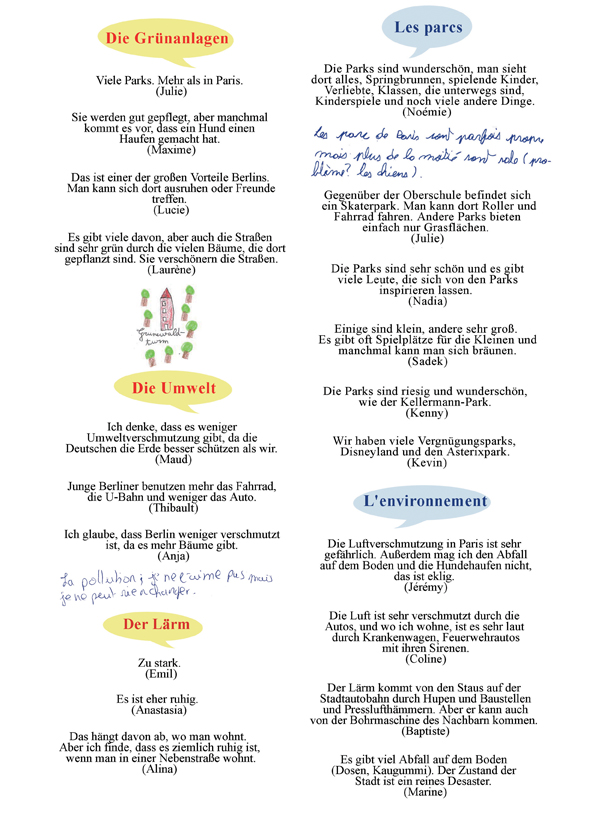 Die Grünanlagen
Viele Parks. Mehr als in Paris.
(Julie)
Sie werden gut gepflegt, aber manchmal
kommt es vor, dass ein Hund einen
Haufen gemacht hat.
(Maxime)
Das ist einer der großen Vorteile Berlins.
Man kann sich dort ausruhen oder Freunde
treffen.
(Lucie)
Es gibt viele davon, aber auch die Straßen
sind sehr grün durch die vielen Bäume, die dort
gepflanzt sind. Sie verschönern die Straßen.
(Laurène)
Grunewald-
turm
Die Umwelt
Ich denke, dass es weniger
Umweltverschmutzung gibt, da die
Deutschen die Erde besser schützen als wir.
(Maud)
Junge Berliner benutzen mehr das Fahrrad,
die U-Bahn und weniger das Auto.
(Thibault)
Ich glaube, dass Berlin weniger verschmutzt
ist, da es mehr Bäume gibt.
(Anja)
La pollution; je ne t'aime pas mais
je ne peut rien changer.
Der Lärm
Zu stark.
(Emil)
Es ist eher ruhig.
(Anastasia)
Das hängt davon ab, wo man wohnt.
Aber ich finde, dass es ziemlich ruhig ist,
wenn man in einer Nebenstraße wohnt.
(Alina)
Les parcs
Die Parks sind wunderschön, man sieht
dort alles, Springbrunnen, spielende Kinder,
Verliebte, Klassen, die unterwegs sind,
Kinderspiele und noch viele andere Dinge.
(Noémie)
Les parc de Paris sont parfois propre
mais plus de la moitié sont sale (pro-
blème? les chiens).
Gegenüber der Oberschule befindet sich
ein Skaterpark. Man kann dort Roller und
Fahrrad fahren. Andere Parks bieten
einfach nur Grasflächen.
(Julie)
Die Parks sind sehr schön und es gibt
viele Leute, die sich von den Parks
inspirieren lassen.
(Nadia)
Einige sind klein, andere sehr groß.
Es gibt oft Spielplätze für die Kleinen und
manchmal kann man sich bräunen.
(Sadek)
Die Parks sind riesig und wunderschön,
wie der Kellermann-Park.
(Kenny)
Wir haben viele Vergnügungsparks,
Disneyland und den Asterixpark.
(Kevin)
L'environnement
Die Luftverschmutzung in Paris ist sehr
gefährlich. Außerdem mag ich den Abfall
auf dem Boden und die Hundehaufen nicht,
das ist eklig.
(Jérémy)
Die Luft ist sehr verschmutzt durch die
Autos, und wo ich wohne, ist es sehr laut
durch Krankenwagen, Feuerwehrautos
mit ihren Sirenen.
(Coline)
Der Lärm kommt von den Staus auf der
Stadtautobahn durch Hupen und Baustellen
und Presslufthämmern. Aber er kann auch
von der Bohrmaschine des Nachbarn kommen.
(Baptiste)
Es gibt viel Abfall auf dem Boden
(Dosen, Kaugummi). Der Zustand der
Stadt ist ein reines Desaster.
(Marine)